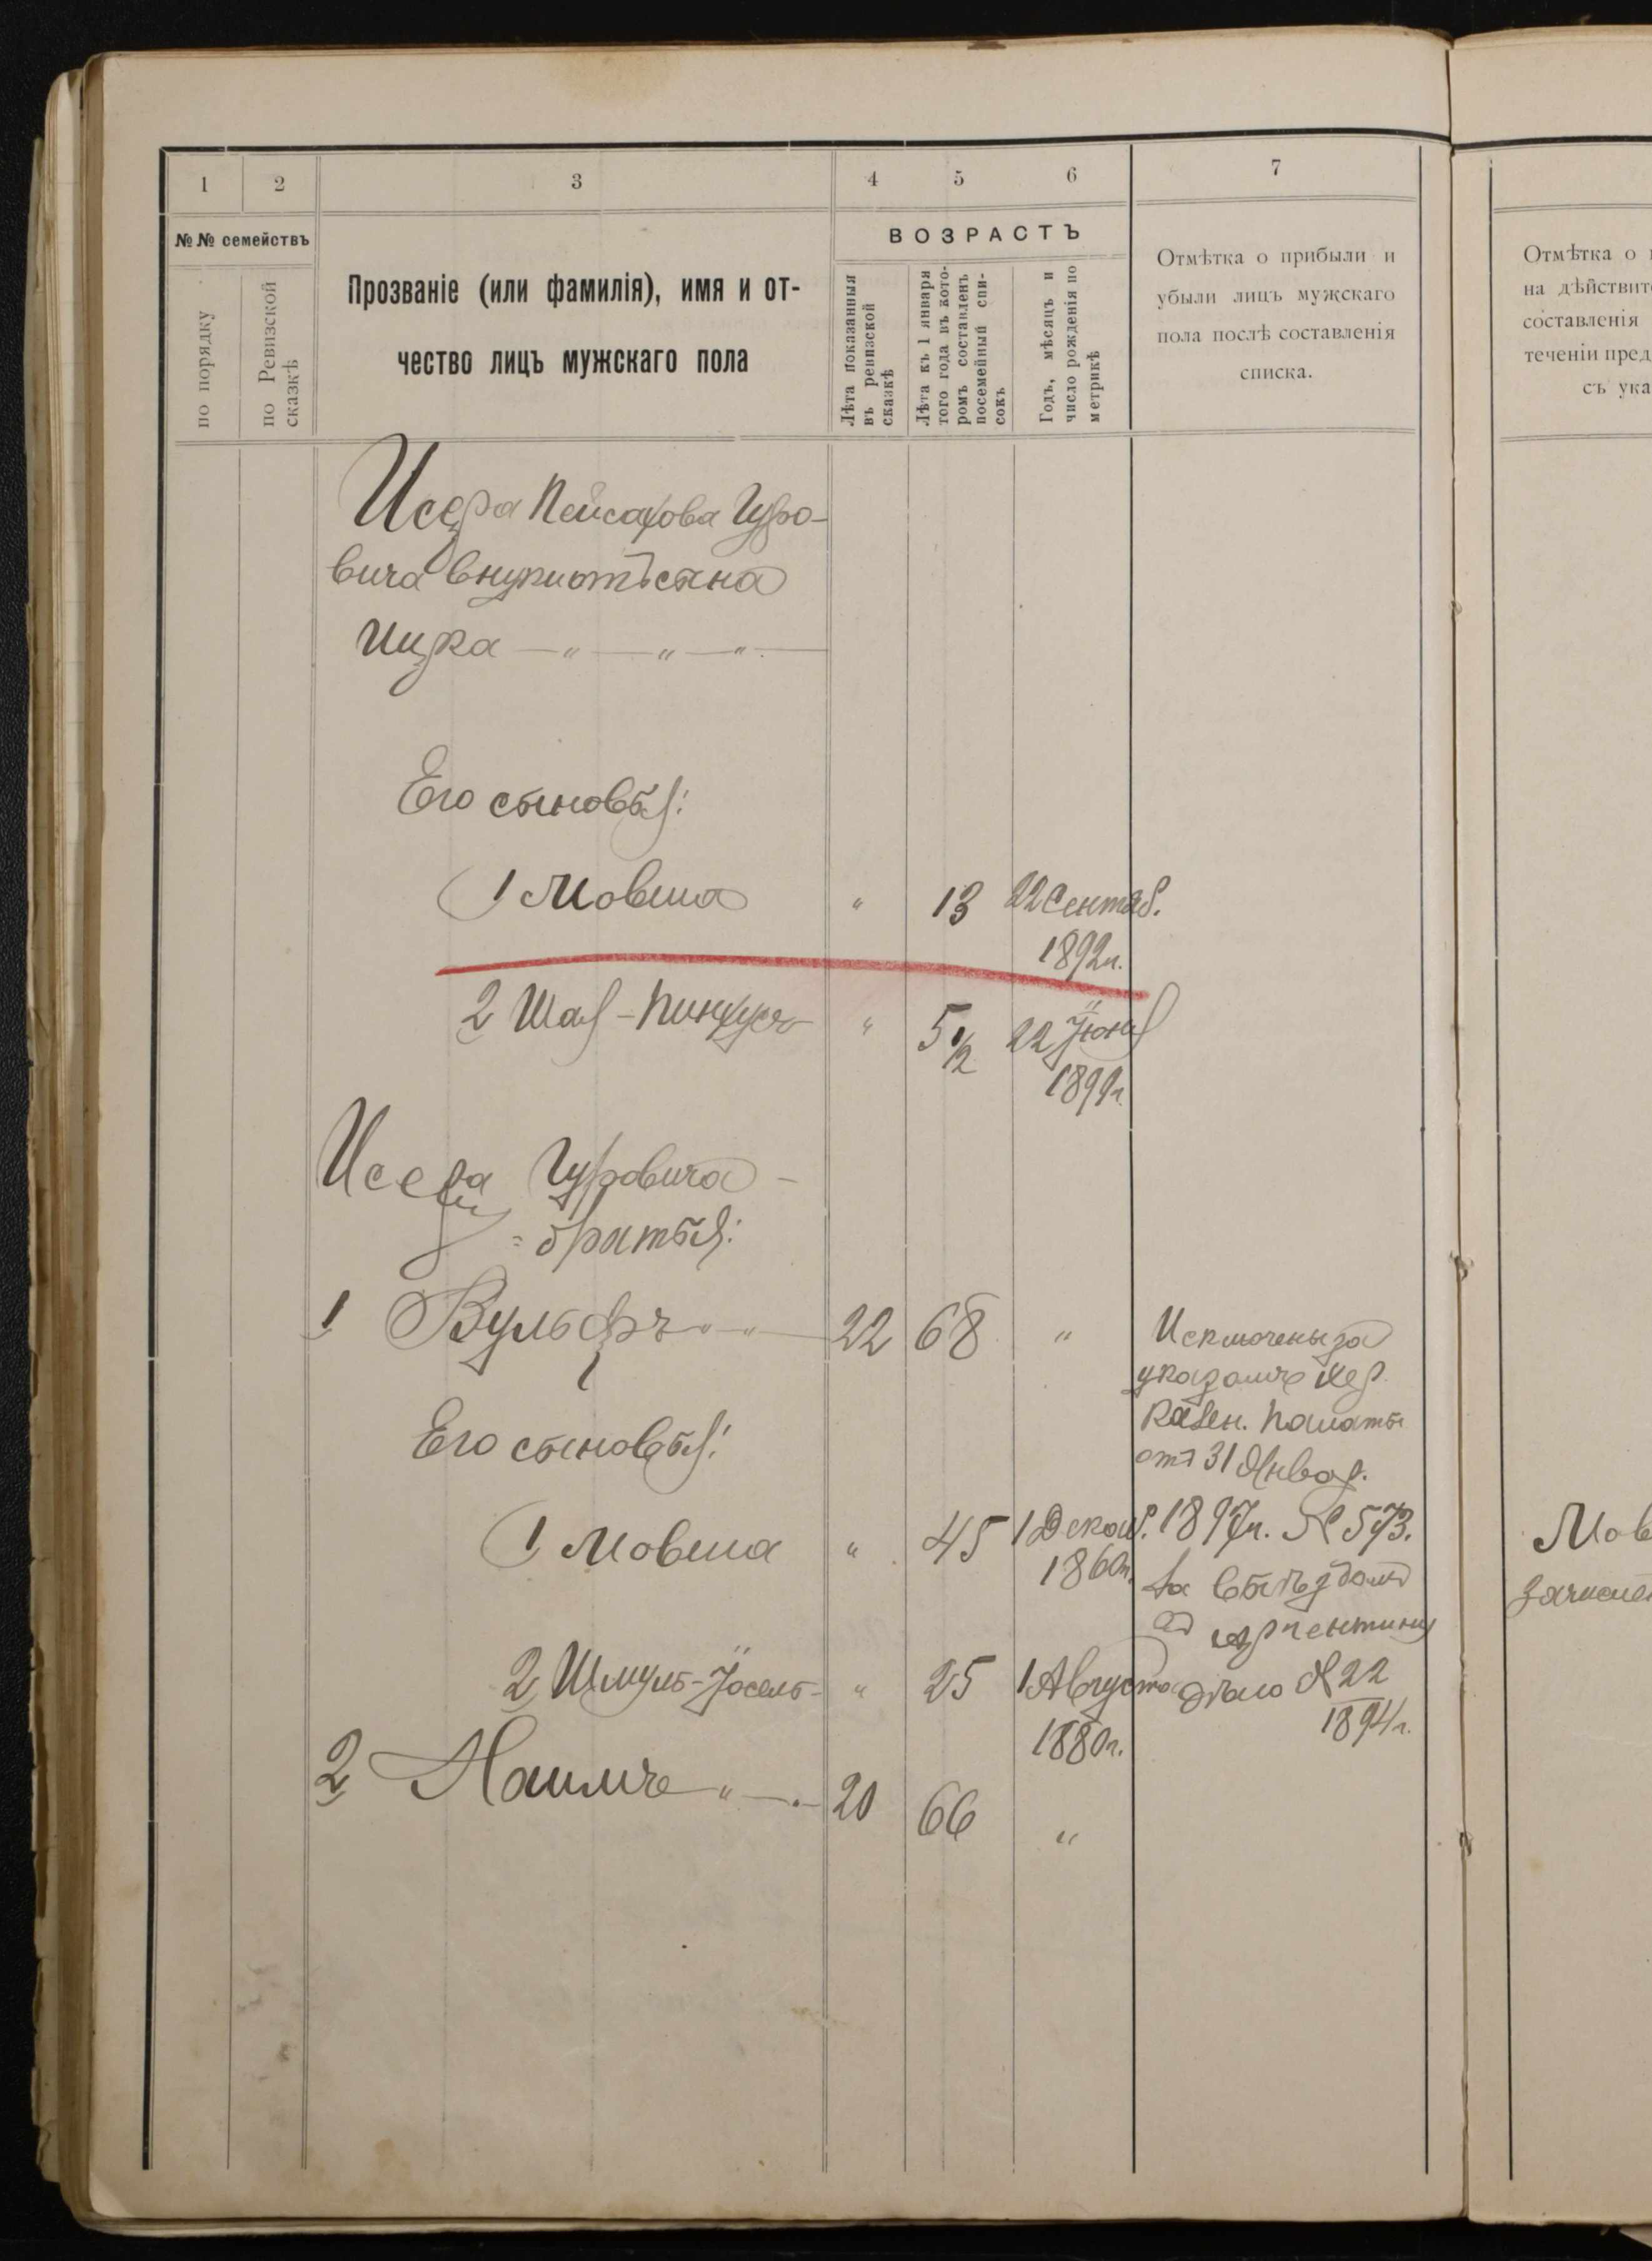 1
2
3
4
5
6
7
№ № семействъ
по порядку
по Ревизской
сказкѣ
Прозваніе (или фамилія), имя и от-
чество лицъ мужскаго пола
ВОЗРАСТЪ
Лѣта показанныя
въ ревизской
сказкѣ
Лѣта къ 1 января
того года въ кото-
ромъ составленъ
посемейный спи-
сокъ
Годъ, мѣсяцъ и
число рожденія по
метрикѣ
Отмѣтка о прибыли и
убыли лицъ мужскаго
пола послѣ составленія
списка.
Отмѣтка о
на дѣйствит
составленія
теченіи пред
съ ука
Исера Пейсахова Гуро-
вича внуки отъ сына
Ицка — „ — „ — „ —
Его сыновья:
1 Мовша „ 13 22 Сентяб.
1892 г.
2 Шая-Пинхусъ „ 5 1/2 22 Іюня
1899 г.
Исера Гуровича -
= братья:
1 Вульфъ „ „ 22 68 „
Его сыновья:
1 Мовша „ 45 1 Декаб.
1860 г.
2 Шмуль-Іосель - „ 25 1 Августа
1880 г.
2 Наимъ „ — 20 66 „
Исключены за
указомъ Хер.
Казен. Палаты
отъ 31 Январ.
1897 г. № 573.
за выѣздомъ
въ Аргентину
дѣло № 22
1894 г.
Мов
зачисле